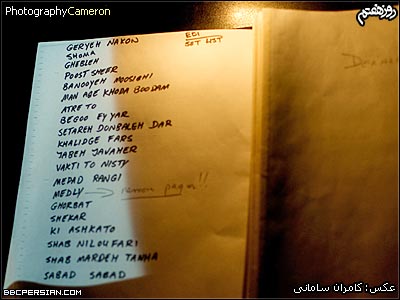 PhotographyCameron
روز هفتم
EBI
SET LIST
GERYEH NAKON
SHOMA
GHEBLEH
POOST SHEER
BANOOYEH MOOSIGHI
MAN AGE KHODA BOODAM
ATRE TO
BEGOO EY YAR
SETAREH DONBALEH DAR
KHALIDGE FARS
JABEH JAVAHER
VAKTI TO NISTY
MEDAD RANGI
MEDLY → remon pagar!!
GHORBAT
SHEKAR
KI ASHKATO
SHAB NILOUFARI
SHAB MARDEH TANHA
SABAD SABAD
عکس: کامران سامانی
BBCPERSIAN.COM